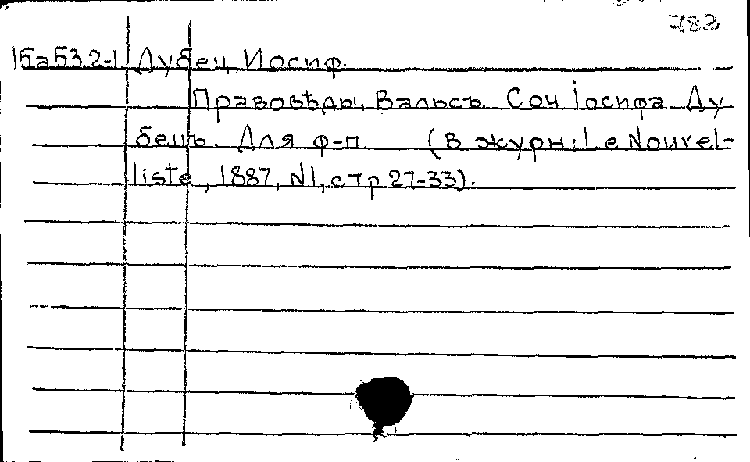 783
15а53.2-1 Дубец Иосиф.
Правовѣды. Вальсъ. Соч Іосифа Ду
бецъ. Для ф-п (в журн: Le Nouvel-
liste, 1887, N1, стр 27-33).